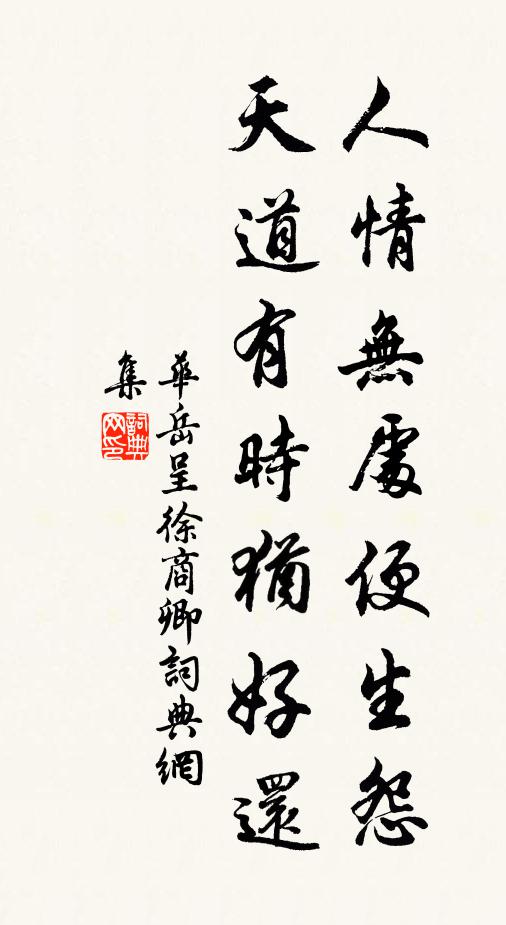 人情無處便生怨
天道有時猶好還
華岳呈徐商卿詞典網
集
詞典
网印